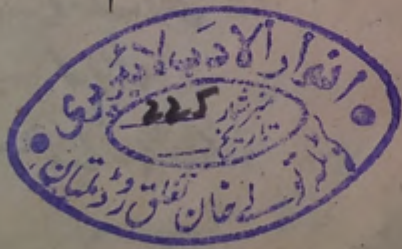 انوار الادب لائبریری
نمبر شمار 225
تاریخ
خان تغلق روڈ ملتان